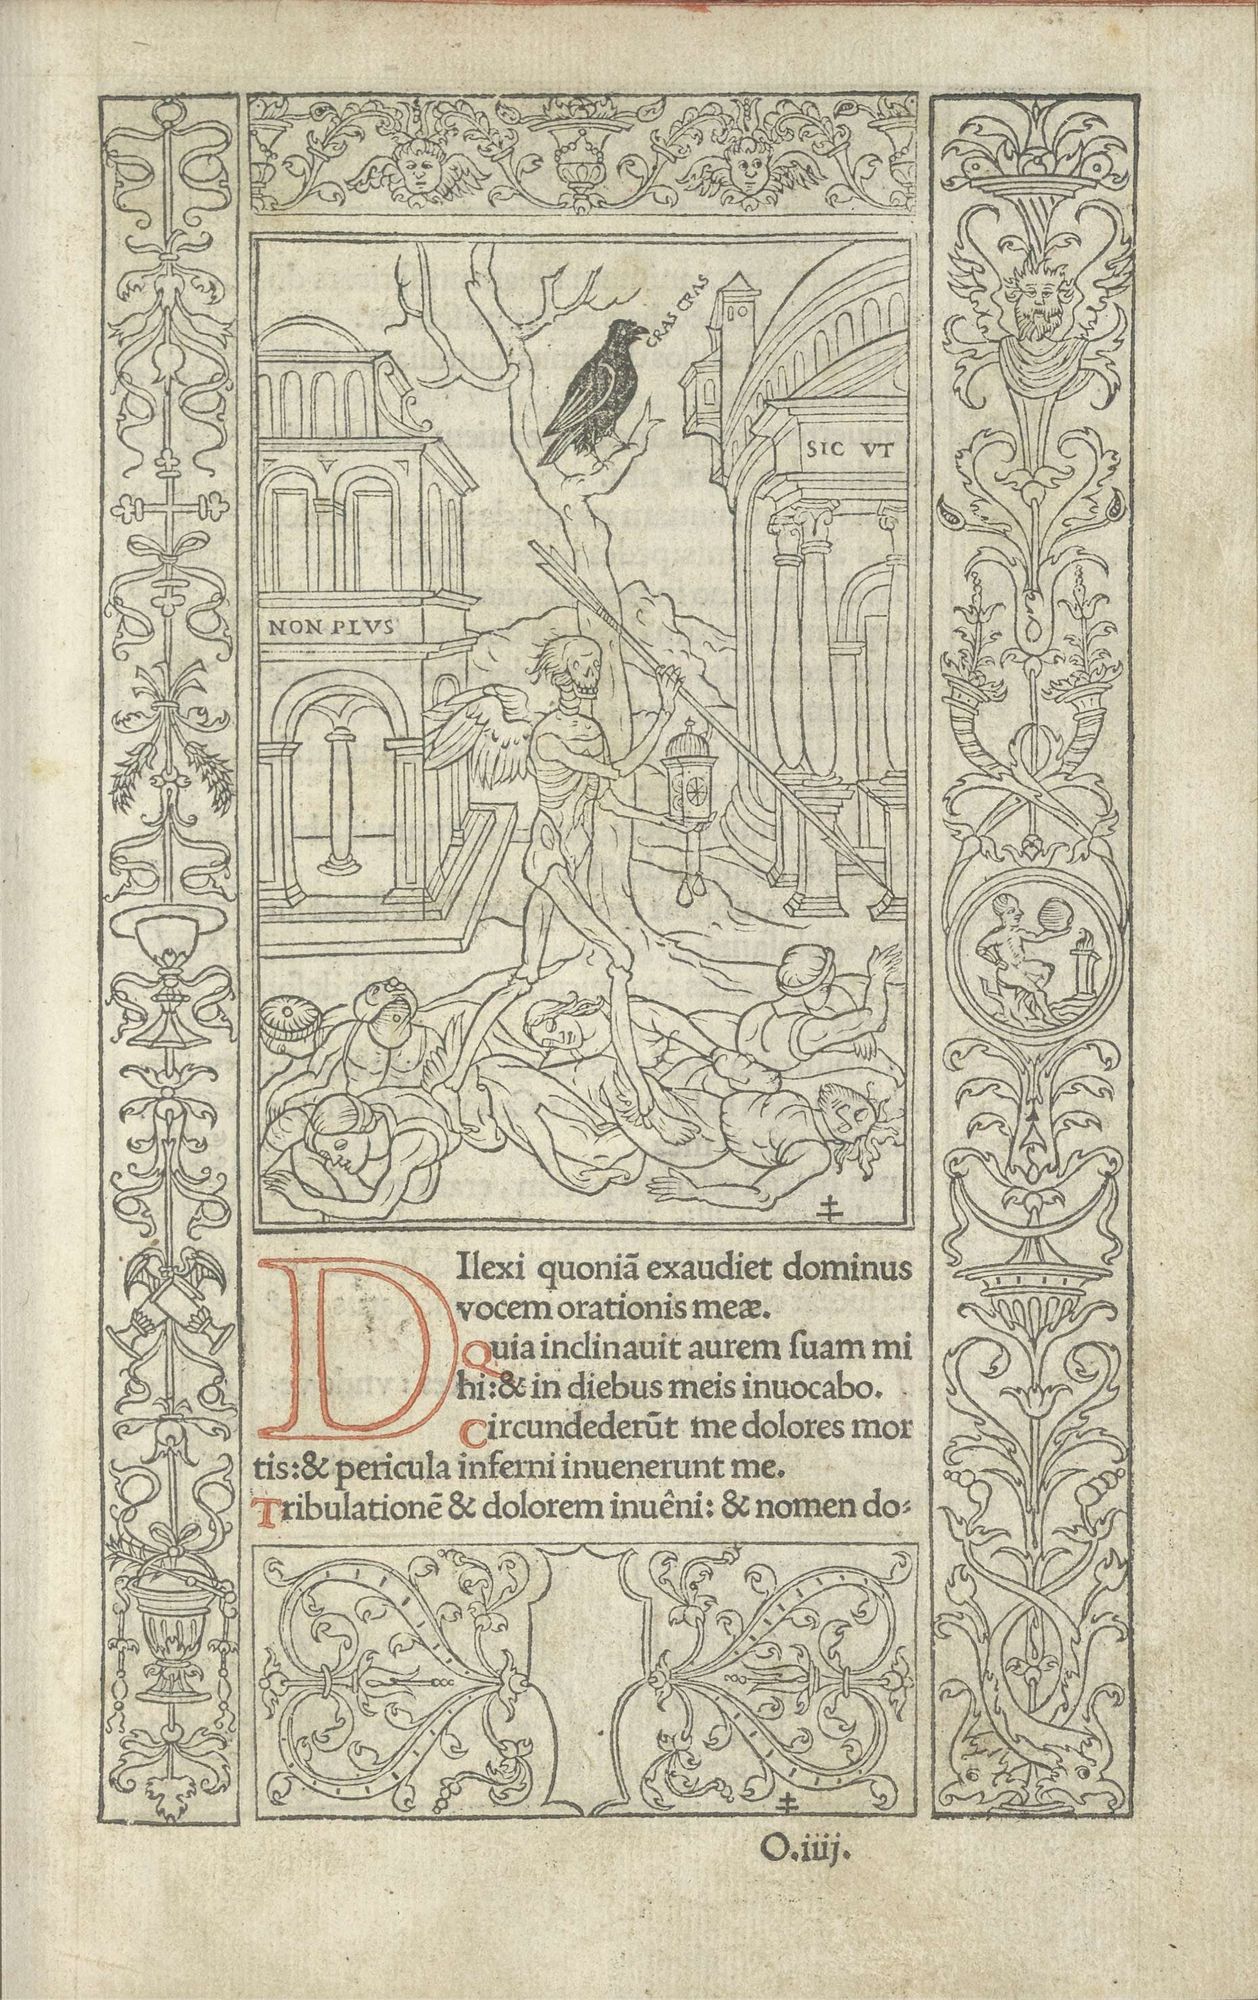 CRAS CRAS
SIC VT
NON PLVS
DIlexi quoniã exaudiet dominus
vocem orationis meæ.
Quia inclinauit aurem ſuam mi
hi:& in diebus meis inuocabo.
Circundederũt me dolores mor
tis:& pericula inferni inuenerunt me.
Tribulationẽ & dolorem inuêni: & nomen do⸗
O.iiij.